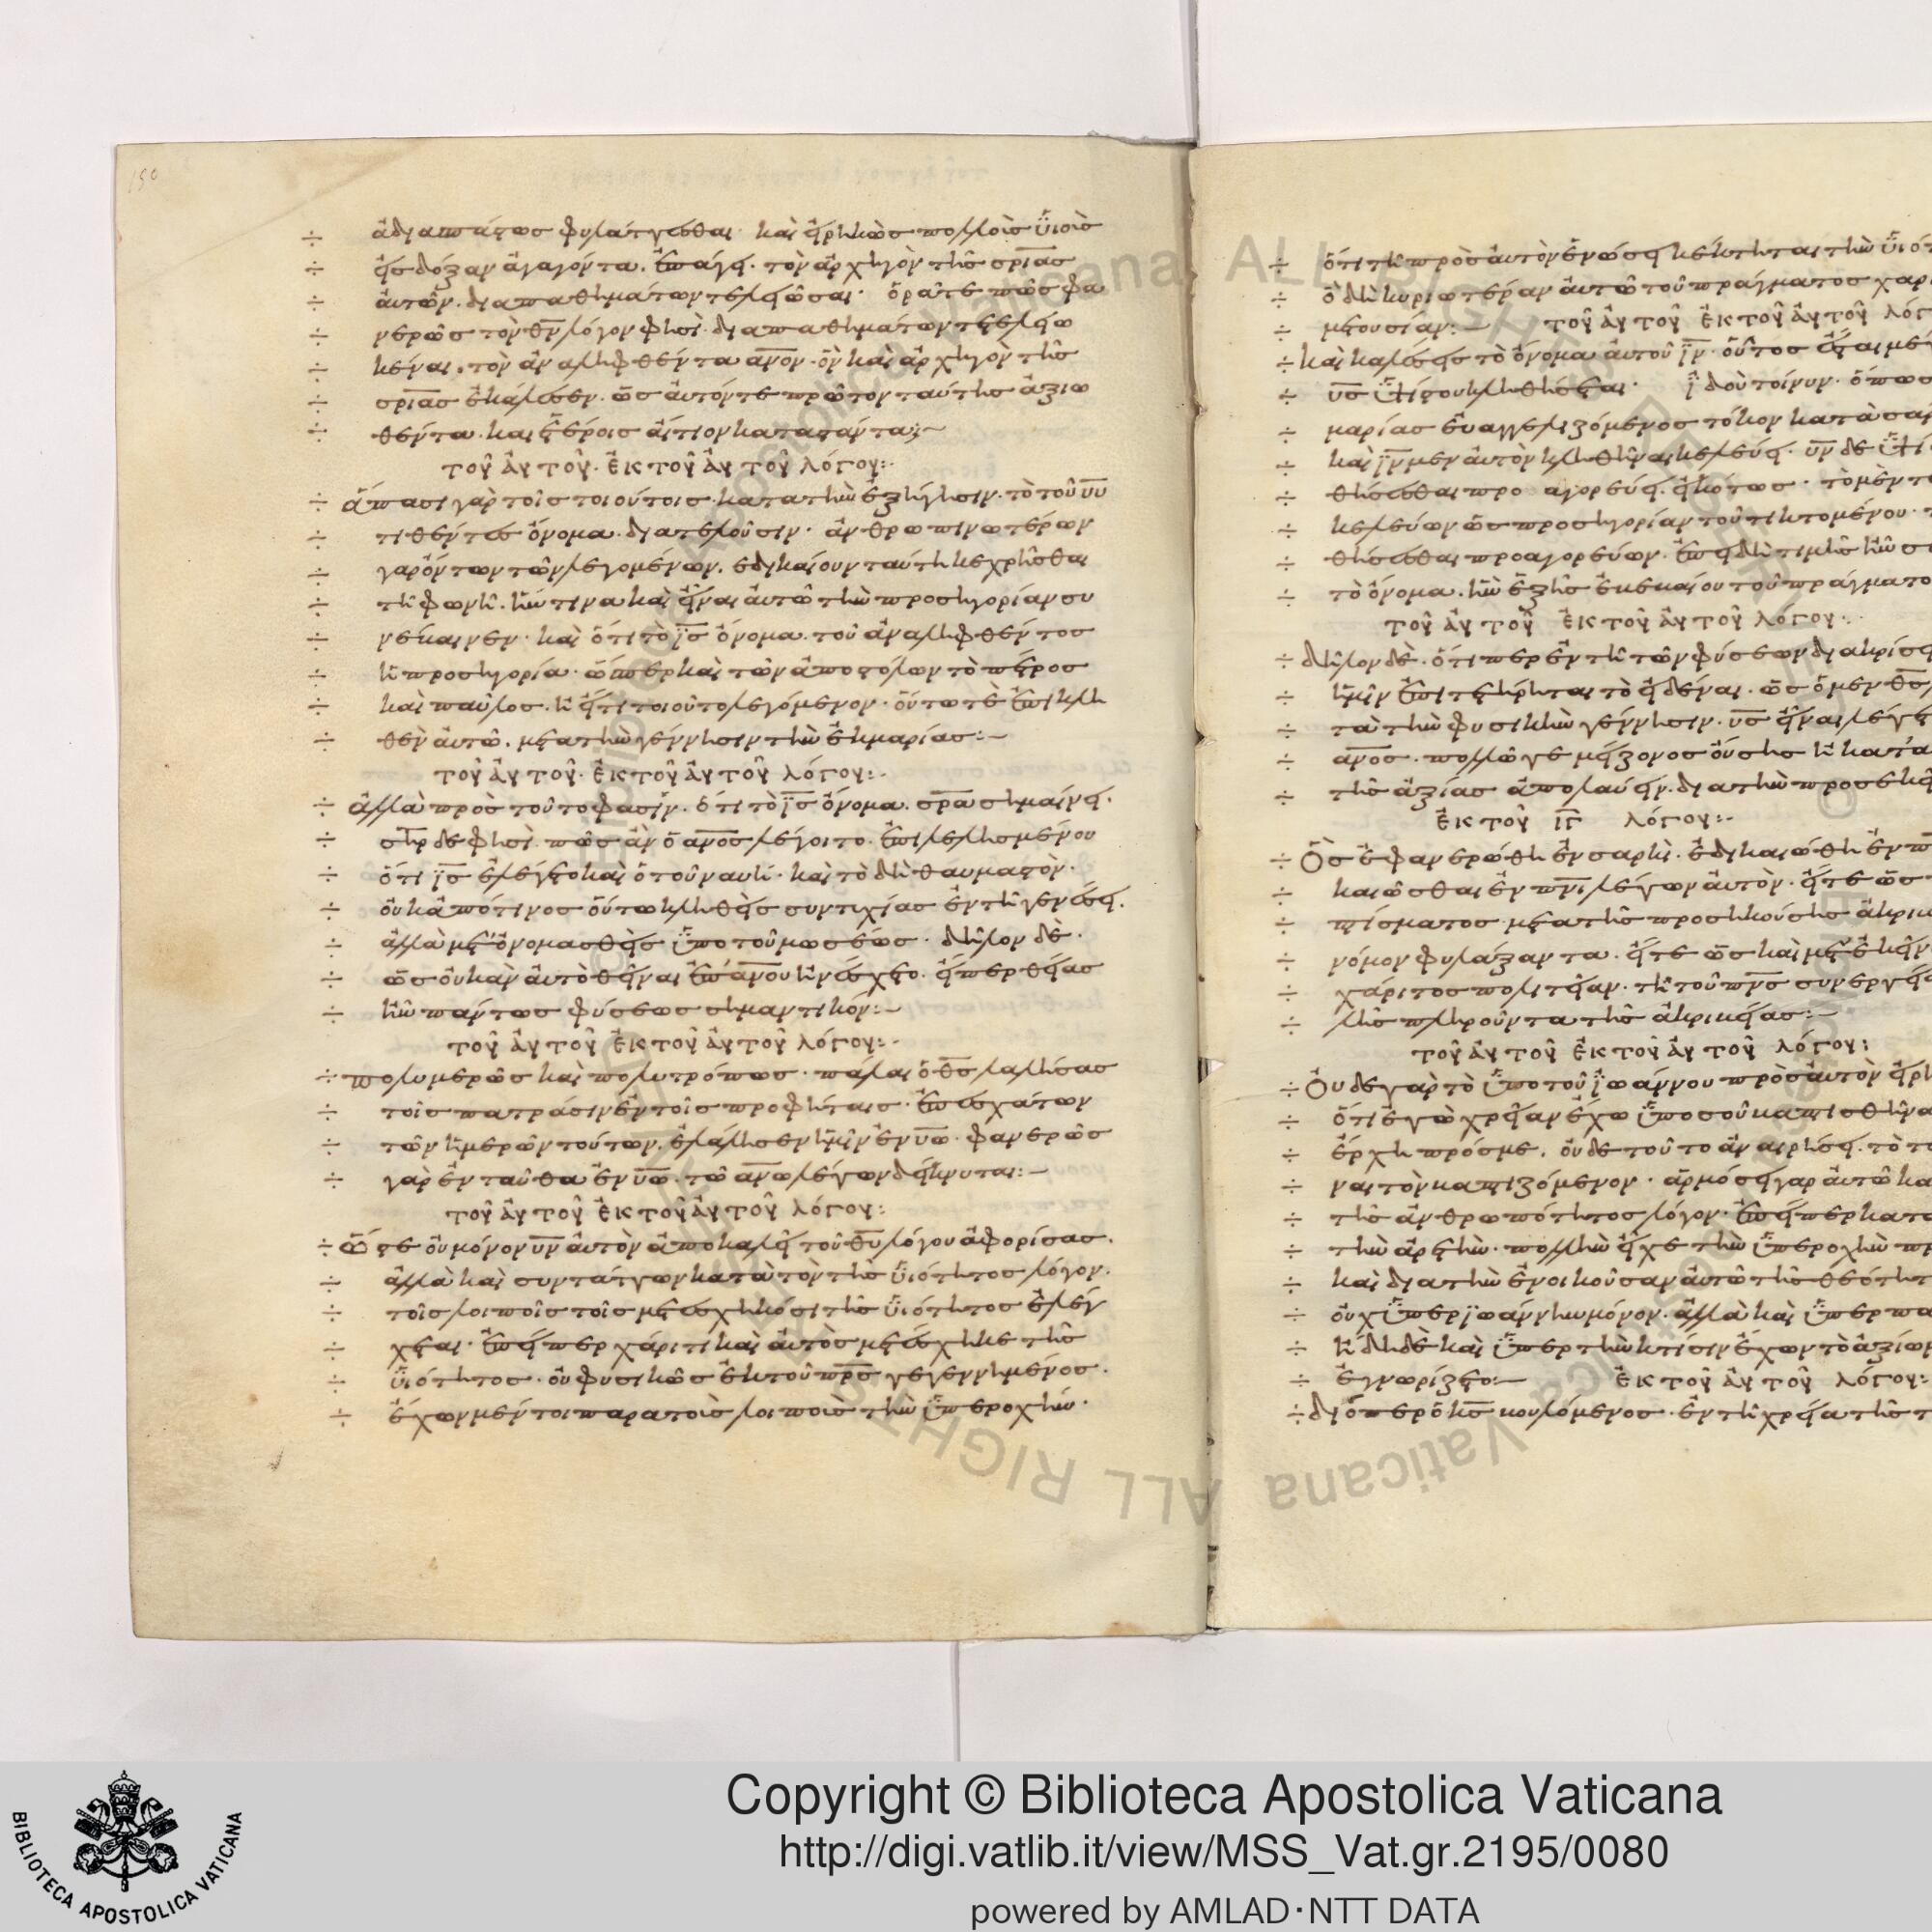 150
ἀδιαπτώτως φυλάττεσθαι· καὶ εἰρηκὼς πολλοὺς υἱοὺς
εἰς δόξαν ἀγαγόντα. ἐπάγει· τὸν ἀρχηγὸν τῆς σρίας
αὐτῶν. διὰ παθημάτων τελειῶσαι· ὁρᾶτε πῶς φα
νερῶς τὸν θν λόγον φησὶ. διὰ παθημάτων τετελειω
κέναι. τὸν ἀναληφθέντα ανον. ὃν καὶ ἀρχηγὸν τῆς
σρίας ἐκάλεσεν. ὡς αὐτόν τε πρῶτον ταύτης ἀξιω
θέντα. καὶ ἑτέροις αἴτιον καταστάντα:~
τοῦ αὐτοῦ. ἐκ τοῦ αὐτοῦ λόγου:
ἅπασι γὰρ τοῖς τοιούτοις κατὰ τὴν ἐξήγησιν. τὸ τοῦ υυ
τιθέντες ὄνομα. διατελοῦσιν· ἀνθρωπινωτέρων
γὰρ ὄντων τῶν λεγομένων. ἐδικαίουν ταύτη κεχρῆσθαι
τῆ φωνῆ. ἥν τινα καὶ εἶναι αὐτῶ τὴν προσηγορίαν συ
νέβαινεν· καὶ ὅτι τὸ ις ὄνομα. τοῦ ἀναληφθέντος
ἡ προσηγορία· ὥσπερ καὶ τῶν ἀποστόλων τὸ πέτρος
καὶ παῦλος. ἢ εἴ τι τοιοῦτο λεγόμενον· οὕτω τε ἐπικλη
θὲν αὐτῶ. μετὰ τὴν γέννησιν τὴν ἐκ μαρίας:~
τοῦ αὐτοῦ. ἐκ τοῦ αὐτοῦ λόγου:
ἀλλὰ πρὸς τοῦτο φασίν. ὅτι τὸ ις ὄνομα. σρα σημαίνει.
σηρ δέ φησι. πῶς ἂν ὁ ανος λέγοιτο. ἐπιλελησμένοι
ὅτι ις ἐλέγετο καὶ ὁ τοῦ ναυῆ· καὶ τὸ δὴ θαυμαστὸν.
οὐκ ἀπό τινος οὕτω κληθεὶς συντυχίας ἐν τῆ γενέσει.
ἀλλὰ μετονομασθεὶς ὑπὸ τοῦ μωσέως. δῆλον δὲ.
ὡς οὐκ ἂν αὐτὸ θεῖναι ἐπ' ανου ἠνέσχετο. εἴπερ θείας
ἦν πάντως φύσεως σημαντικόν:~
τοῦ αὐτοῦ ἐκ τοῦ αὐτοῦ λόγου:
πολυμερῶς καὶ πολυτρόπως. πάλαι ὁ θς λαλήσας
τοῖς πατράσιν ἐν τοῖς προφήταις. ἐπ' ἐσχάτων
τῶν ἡμερῶν τούτων. ἐλάλησεν ἡμῖν ἐν υω. φανερῶς
γὰρ ἐνταῦθα ἐν υω. τῶ ανω λέγων δείκνυται:~
τοῦ αὐτοῦ ἐκ τοῦ αὐτοῦ λόγου:
ὥστε οὐ μόνον υν αὐτὸν ἀποκαλεῖ τοῦ θυ λόγου ἀφορίσας.
ἀλλὰ καὶ συντάττων κατὰ τὸν τῆς υἱότητος λόγον.
τοῖς λοιποῖς τοῖς μετεσχηκόσι τῆς υἱότητος ἐλέγ
χεται. ἐπείπερ χάριτι καὶ αὐτὸς μετέσχηκε τῆς
υἱότητος. οὐ φυσικῶς ἐκ τοῦ πρς γεγεννημένος.
ἔχων μέντοι παρὰ τοὺς λοιποὺς τὴν ὑπεροχήν.
ὅτι τῆ πρὸς αὐτὸν ἑνώσει κέκτηται τὴν υἱότ
ὃ δὴ κυριωτέραν αὐτῶ τοῦ πράγματος χαρ
μετουσίαν:~ τοῦ αὐτοῦ ἐκ τοῦ αὐτοῦ λόγ
καὶ καλέσεις τὸ ὄνομα αὐτοῦ ιν. οὗτος ἔσται μέγ
υς ὑψίστου κληθήσεται· ἰδοὺ τοίνυν. ὅπως
μαρίας εὐαγγελιζόμενος τόκον κατὰ σάρ
καὶ ιν μὲν αὐτὸν κληθῆναι κελεύει. υν δὲ ὑψί
θήσεσθαι προαγορεύει. εἰκότως. τὸ μὲν το
κελεύων ὡς προσηγορίαν τοῦ τικτομένου. τ
θήσεσθαι προαγορεύων. ἐπειδὴ τιμῆς ἦν ση
τὸ ὄνομα. ἣν ἑξῆς ἐβεβαίου τοῦ πράγματο
τοῦ αὐτοῦ ἐκ τοῦ αὐτοῦ λόγου:
δῆλον δὲ. ὅτιπερ ἐν τῆ τῶν φύσεων διακρίσει
ἡμῖν ἐπιτετήρηται τὸ εἰδέναι. ὡς ὁ μὲν θς
τὰ τὴν φυσικὴν γέννησιν. υς εἶναι λέγετ
ανος. πολλῶ γε μείζονος οὔσης ἢ κατα
τῆς ἀξίας ἀπολαύειν. διὰ τὴν προσεκει
ἐκ τοῦ ιγ λόγου:
ὃς ἐφανερώθη ἐν σαρκὶ. ἐδικαιώθη ἐν π
καιῶσθαι ἐν πνι λέγων αὐτὸν. εἴτε ὡς
πτίσματος μετὰ τῆς προσηκούσης ἀκριβ
νόμον φυλάξαντα. εἴτε ὡς καὶ μετ' ἐκεῖν
χάριτος πολιτείαν. τῆ τοῦ πνς συνεργεία
λῆς πληροῦντα τῆς ἀκριβείας:~
τοῦ αὐτοῦ ἐκ τοῦ αὐτοῦ λόγου:
οὐδὲ γὰρ τὸ ὑπὸ τοῦ ἰωάννου πρὸς αὐτὸν εἰρη
ὅτι ἐγὼ χρείαν ἔχω ὑπὸ σοῦ βαπτισθῆνα
ἔρχη πρός με. οὐδὲ τοῦτο ἀναιρήσει. τὸ το
ναι τὸν βαπτιζόμενον. ἁρμόσει γὰρ αὐτῶ κα
τῆς ἀνθρωπότητος λόγον. ἐπείπερ κατα
τὴν ἀρετὴν. πολλὴν εἶχε τὴν ὑπεροχὴν πρ
καὶ διὰ τὴν ἐνοικοῦσαν αὐτῶ τῆς θεότητ
οὐχ ὑπὲρ ἰωάννην μόνον. ἀλλὰ καὶ ὑπὲρ πα
ἤδη δὲ καὶ ὑπὲρ τὴν κτίσιν ἔχων τὸ ἀξίωμ
ἐγνωρίζετο:~ ἐκ τοῦ αὐτοῦ λόγου:
διόπερ ὁ κς βουλόμενος. ἐν τῆ χρεία τῆς τ
Copyright © Biblioteca Apostolica Vaticana
http://digi.vatlib.it/view/MSS_Vat.gr.2195/0080
powered by AMLAD·NTT DATA
BIBLIOTECA APOSTOLICA VATICANA